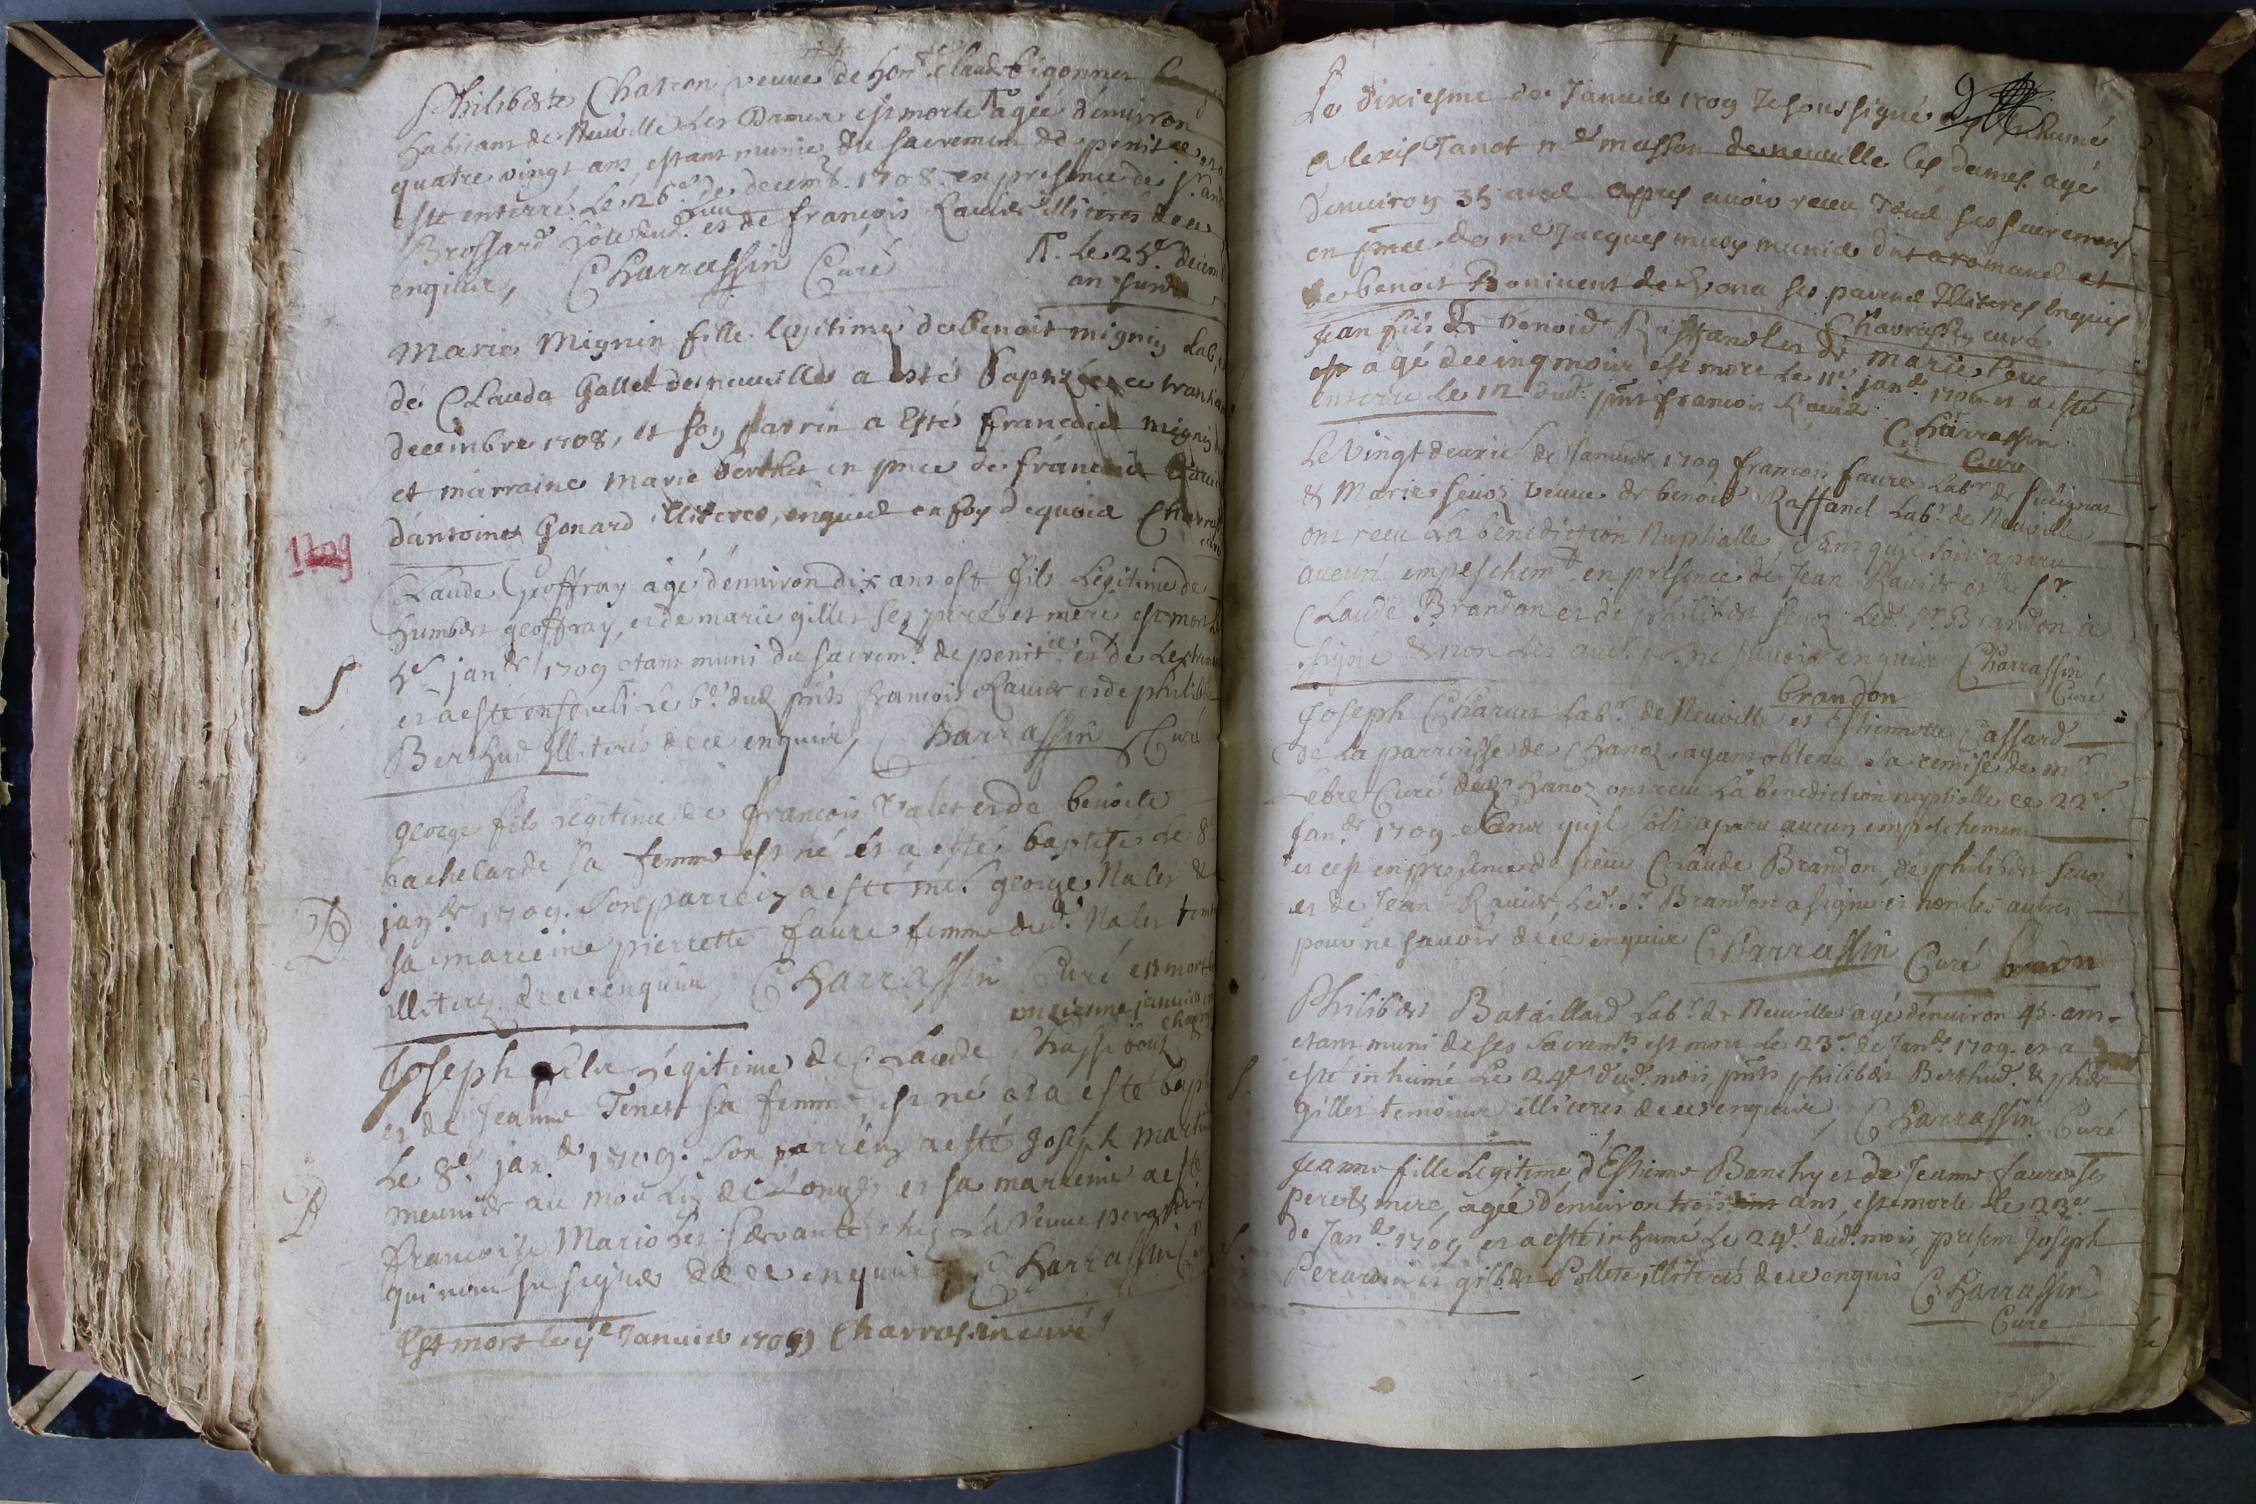 Philiberte Chatron veuve de hon.^e Claude Pigonnet
habitant de Neuville Les Dames est morte agée d'environ
quatre vingt ans, estant munie du sacrement de penit^ce
este enterré Le 26^e de decemb. 1708 en presence de S^r.
Brossard hôte dud. Lieu et de François Ravier illiterés de ce
enquir, Charrassin Curé
Le 25^e decem
an susd
Marie Mignin fille legitime de Benoit mignin Lab.
de Clauda Gallet de neuville a esté Baptizée ce
decembre 1708, et son parrin a Esté françois mignin
et marraine Marie Berthet en p^nce de françois
d'antoine Gonard illiteres, enquid en foy dequoid Charrassin
curé
1709
Claude Geoffray agé d'environ dix ans est fils Legitime de
humbert geoffray, et de marie gillet ses pere et mere est mort
jan^er 1709 etant muni du sacrem^t de penit^ce et de Lextreme
S
et a esté enseveli Le 6^e dud p^nts François Ravier et de philib
Berthud illiterés de ce enquir, Charrassin Curé
george fils Legitime de françois Valet et de benoite
bachelarde sa femme est né et a esté baptisé Le 8^e
jan^er 1709. Son parrein a esté george Nalet &
B
sa mareine pierrette faure femme dud. Nalet
illiterez de ce enquir, Charrassin Curé est mort
onzieme janvier
Joseph fils Légitime de Claude
et de Jeanne Tenet sa femme, est né et a esté bap
Le 8^e jan^er 1709. Son parrein a esté Joseph Martin
B
meunier au moulin de Longes et sa marreine a esté
francoise Mariolet servante chez La veuve
qui nont su signer de ce enquir Charrassin
Est mort le Janvier 1709 Charrassin curé
9
Le dixiesme de Janvier 1709 Je soussigné inhumé
alexis Tanot m^e masson de neuville les dames agé
d'environ 35 ans apres avoir receu tous ses sacremens
en p^nce de m^e Jacques
et
de benoit Bonivent de ses parens Illiteres Enquis
Charrassin curé
Jean fils de Benoit Raffanel et de marie
agé de cinq mois est mort Le 11^e jan^er 1709 et a esté
enterré Le 12 dud. p^nt francois Ravier
Charrassin
Curé
Le Vingt deuxie de Janvier 1709 francois faure Lab^r de
& Marie veuve de benoit Raffanel Lab^r de Neuville
ont receu La benediction Nuptialle, sans quil soit aparu
aucun empeschem^t en presence de Jean Ravier et de S^r.
Claude Brandon et de philibert Led. S^r. Brandon a
signé & non Les autr. p^r. ne savoir enquis Charrassin
Curé
brandon
Joseph Charvet Lab^r. de Neuville et Estiennette Cassard
de La parroisse de Chanoz, ayant obtenu La remise de m^r
Lebre Curé dud. Chanoz ont receu La benediction nuptialle ce 22^e
Jan^er 1709 sans quil soit aparu aucun empechement
et cest en presence de sieur Claude Brandon, de philibert
et de Jean Ravier, Led. S^r. Brandon a signé et non les autres
pour ne savoir de ce enquir Charrassin Curé
Philibert Bataillard Lab^r. de Neuville agé d'environ 45. ans
etant muni de ses Sacrem^ts est mort Le 23^e. de Jan^er 1709. et a
S.
esté inhumé Le 24^e dud. mois p^nts philibert Berthud. &
gillet temoins illiteres de ce enquir, Charrassin Curé
Jeanne fille Legitime d'Estienne Banchy et de Jeanne faure ses
pere & mere, agée d'environ trois ans, est morte Le 23^e
S.
de Jan^er 1709 et a esté inhumé Le 24^e. dud. mois, present Joseph
Perardin et gilbert Pollete illiterés de ce enquis Charrassin
Curé